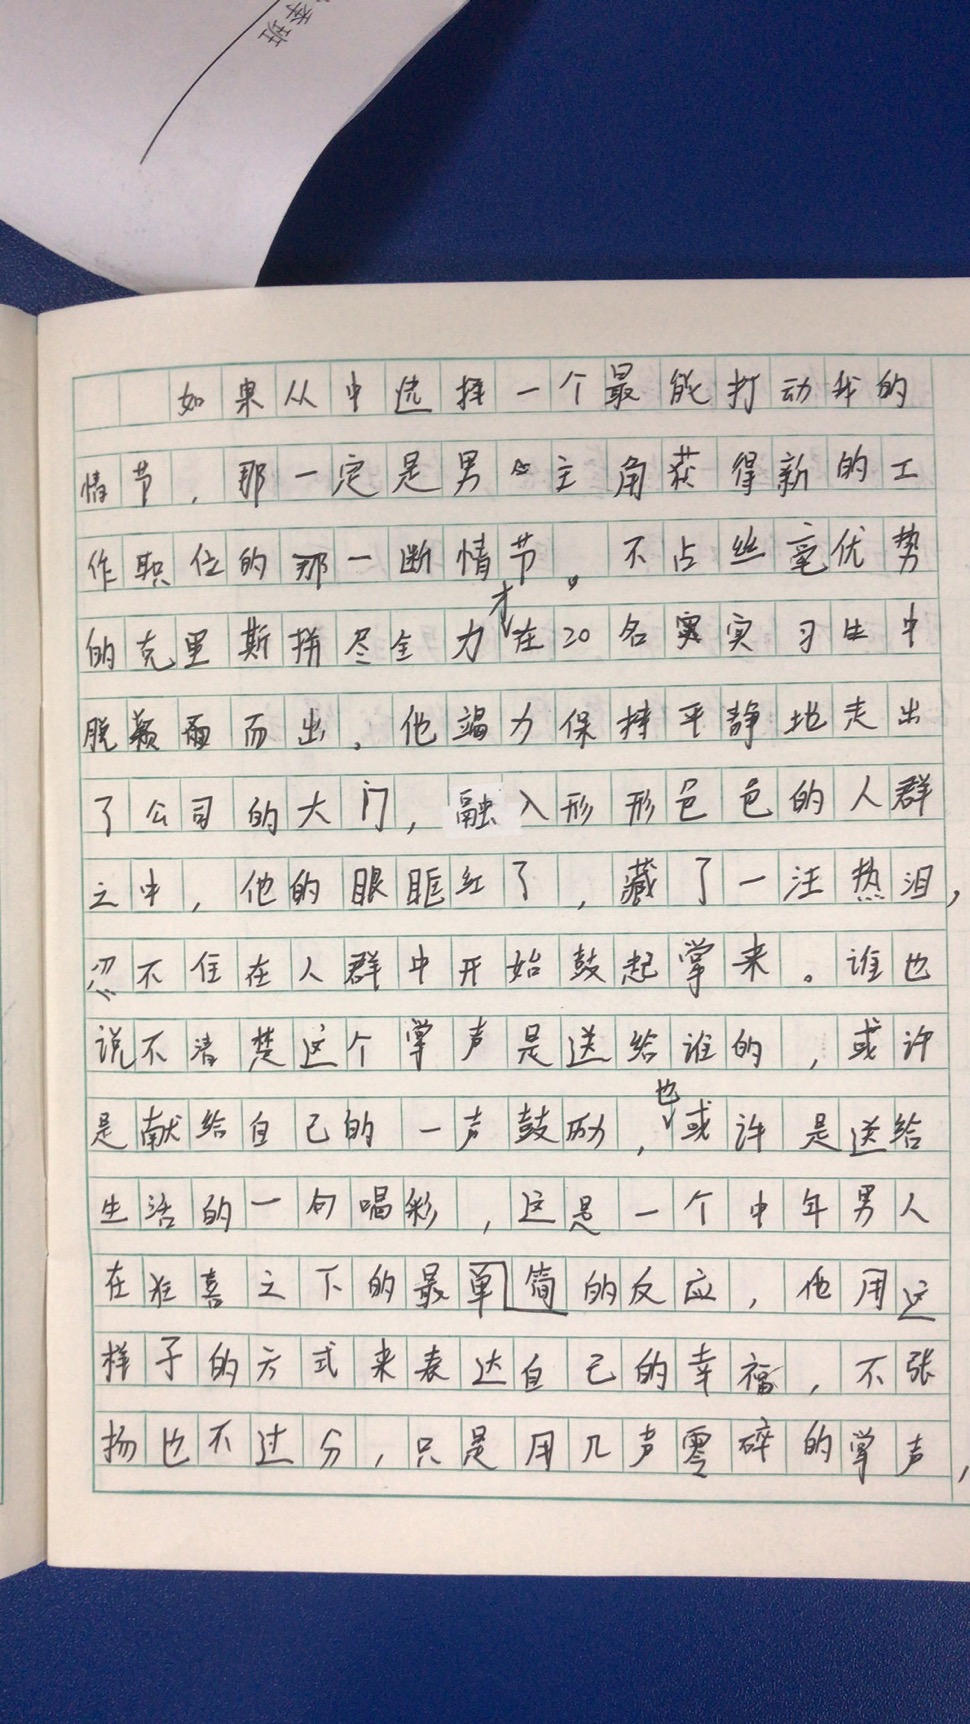 班
如果从中选择一个最能打动我的
情节，那一定是男主角获得新的工
作职位的那一断情节。不占丝毫优势
的克里斯拼尽全力才在20名实习生中
脱颖而出，他竭力保持平静地走出
了公司的大门，融入形形色色的人群
之中，他的眼眶红了，藏了一汪热泪，
忍不住在人群中开始鼓起掌来。谁也
说不清楚这个掌声是送给谁的，或许
是献给自己的一声鼓励，也或许是送给
生活的一句喝彩，这是一个中年男人
在狂喜之下的最单简的反应，他用这
样子的方式来表达自己的幸福，不张
扬也不过分，只是用几声零碎的掌声，